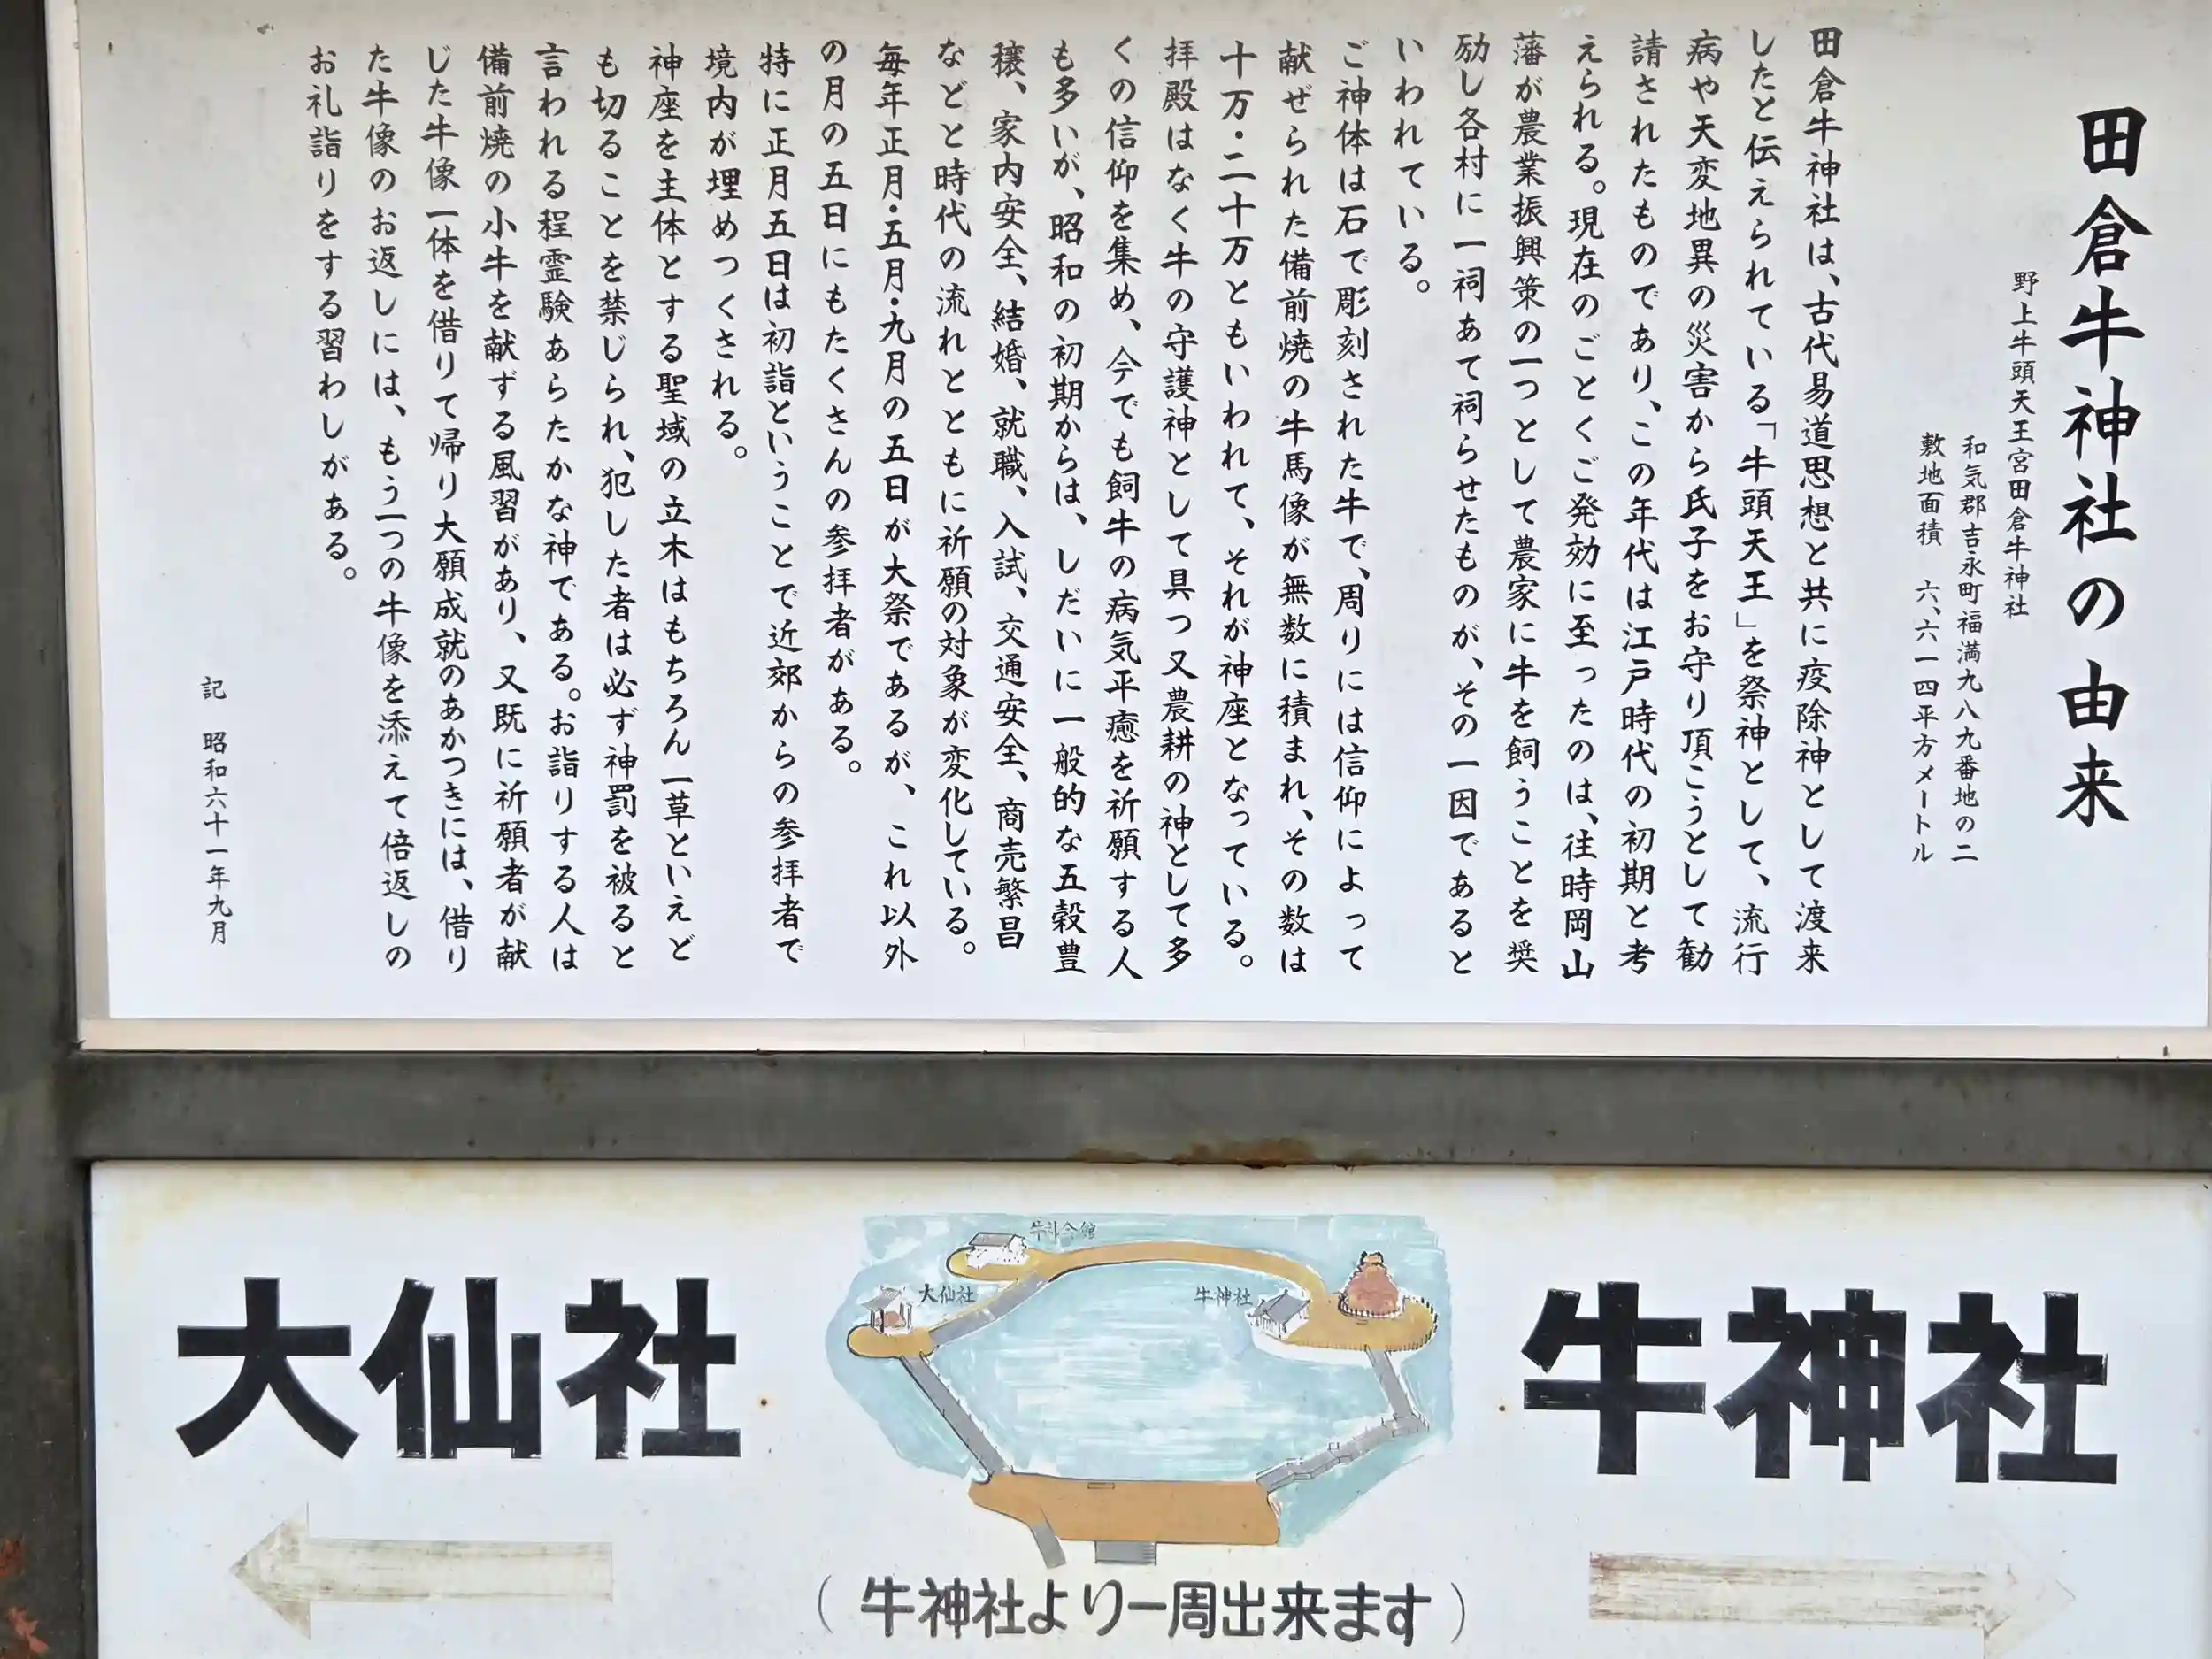 田倉牛神社の由来
野上牛頭天王宮田倉牛神社
和気郡吉永町福満九八九番地の二
敷地面積　六、六一四平方メートル
田倉牛神社は、古代易道思想と共に疫除神として渡来
したと伝えられている「牛頭天王」を祭神として、流行
病や天変地異の災害から氏子をお守り頂こうとして勧
請されたものであり、この年代は江戸時代の初期と考
えられる。現在のごとくご発効に至ったのは、往時岡山
藩が農業振興策の一つとして農家に牛を飼うことを奨
励し各村に一祠あて祠らせたものが、その一因であると
いわれている。
ご神体は石で彫刻された牛で、周りには信仰によって
献ぜられた備前焼の牛馬像が無数に積まれ、その数は
十万・二十万ともいわれて、それが神座となっている。
拝殿はなく牛の守護神として具つ又農耕の神として多
くの信仰を集め、今でも飼牛の病気平癒を祈願する人
も多いが、昭和の初期からは、しだいに一般的な五穀豊
穣、家内安全、結婚、就職、入試、交通安全、商売繁昌
などと時代の流れとともに祈願の対象が変化している。
毎年正月・五月・九月の五日が大祭であるが、これ以外
の月の五日にもたくさんの参拝者がある。
特に正月五日は初詣ということで近郊からの参拝者で
境内が埋めつくされる。
神座を主体とする聖域の立木はもちろん一草といえど
も切ることを禁じられ、犯した者は必ず神罰を被ると
言われる程霊験あらたかな神である。お詣りする人は
備前焼の小牛を献ずる風習があり、又既に祈願者が献
じた牛像一体を借りて帰り大願成就のあかつきには、借り
た牛像のお返しには、もう一つの牛像を添えて倍返しの
お礼詣りをする習わしがある。
記　昭和六十一年九月
大仙社
牛神会館
大仙社
牛神社
牛神社
（牛神社より一周出来ます）